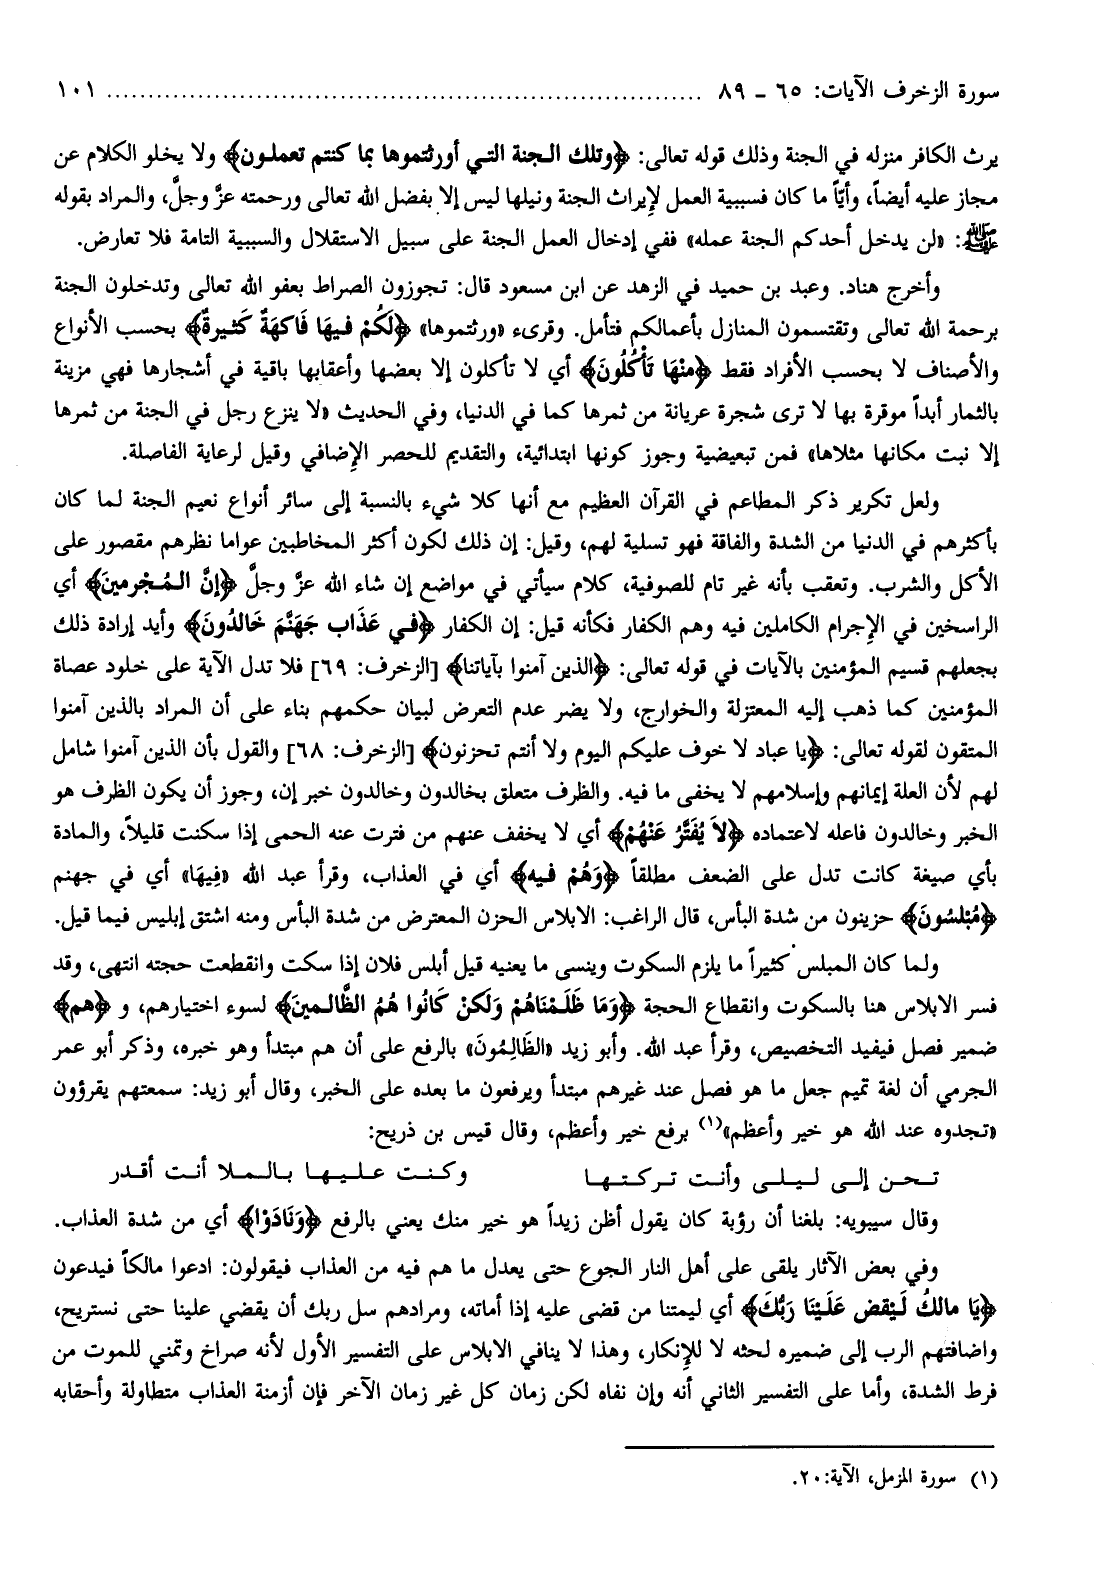 سورة الزخرف الآيات: ٦٥ ـ ٨٩ ........................................................................ ١٠١
يرث الكافر منزله في الجنة وذلك قوله تعالى: ﴿وتلك الجنة التي أورثتموها بما كنتم تعملون﴾ ولا يخلو الكلام عن
مجاز عليه أيضاً، وأيّاً ما كان فسببية العمل لإيراث الجنة ونيلها ليس إلا بفضل الله تعالى ورحمته عزَّ وجلَّ، والمراد بقوله
ﷺ: «لن يدخل أحدكم الجنة عمله» ففي إدخال العمل الجنة على سبيل الاستقلال والسببية التامة فلا تعارض.
وأخرج هناد. وعبد بن حميد في الزهد عن ابن مسعود قال: تجوزون الصراط بعفو الله تعالى وتدخلون الجنة
برحمة الله تعالى وتقتسمون المنازل بأعمالكم فتأمل. وقرىء «ورثتموها» ﴿لَكُمْ فيهَا فَاكهَةٌ كَثيرةٌ﴾ بحسب الأنواع
والأصناف لا بحسب الأفراد فقط ﴿منْهَا تَأْكُلُونَ﴾ أي لا تأكلون إلا بعضها وأعقابها باقية في أشجارها فهي مزينة
بالثمار أبداً موقرة بها لا ترى شجرة عريانة من ثمرها كما في الدنيا، وفي الحديث «لا ينزع رجل في الجنة من ثمرها
إلا نبت مكانها مثلاها» فمن تبعيضية وجوز كونها ابتدائية، والتقديم للحصر الإضافي وقيل لرعاية الفاصلة.
ولعل تكرير ذكر المطاعم في القرآن العظيم مع أنها كلا شيء بالنسبة إلى سائر أنواع نعيم الجنة لما كان
بأكثرهم في الدنيا من الشدة والفاقة فهو تسلية لهم، وقيل: إن ذلك لكون أكثر المخاطبين عواما نظرهم مقصور على
الأكل والشرب. وتعقب بأنه غير تام للصوفية، كلام سيأتي في مواضع إن شاء الله عزَّ وجلَّ ﴿إنَّ المُجْرمينَ﴾ أي
الراسخين في الإجرام الكاملين فيه وهم الكفار فكأنه قيل: إن الكفار ﴿في عَذَاب جَهَنَّمَ خَالدُونَ﴾ وأيد إرادة ذلك
بجعلهم قسيم المؤمنين بالآيات في قوله تعالى: ﴿الذين آمنوا بآياتنا﴾ [الزخرف: ٦٩] فلا تدل الآية على خلود عصاة
المؤمنين كما ذهب إليه المعتزلة والخوارج، ولا يضر عدم التعرض لبيان حكمهم بناء على أن المراد بالذين آمنوا
المتقون لقوله تعالى: ﴿يا عباد لا خوف عليكم اليوم ولا أنتم تحزنون﴾ [الزخرف: ٦٨] والقول بأن الذين آمنوا شامل
لهم لأن العلة إيمانهم وإسلامهم لا يخفى ما فيه. والظرف متعلق بخالدون وخالدون خبر إن، وجوز أن يكون الظرف هو
الخبر وخالدون فاعله لاعتماده ﴿لاَ يُفَتَّرُ عَنْهُمْ﴾ أي لا يخفف عنهم من فترت عنه الحمى إذا سكنت قليلاً، والمادة
بأي صيغة كانت تدل على الضعف مطلقاً ﴿وَهُمْ فيه﴾ أي في العذاب، وقرأ عبد الله «فِيهَا» أي في جهنم
﴿مُبْلسُونَ﴾ حزينون من شدة البأس، قال الراغب: الابلاس الحزن المعترض من شدة البأس ومنه اشتق إبليس فيما قيل.
ولما كان المبلس كثيراً ما يلزم السكوت وينسى ما يعنيه قيل أبلس فلان إذا سكت وانقطعت حجته انتهى، وقد
فسر الابلاس هنا بالسكوت وانقطاع الحجة ﴿وَمَا ظَلَمْنَاهُمْ وَلَكنْ كَانُوا هُمُ الظَّالمينَ﴾ لسوء اختيارهم، و ﴿هم﴾
ضمير فصل فيفيد التخصيص، وقرأ عبد الله. وأبو زيد «الظَالِمُونَ» بالرفع على أن هم مبتدأ وهو خبره، وذكر أبو عمر
الجرمي أن لغة تميم جعل ما هو فصل عند غيرهم مبتدأ ويرفعون ما بعده على الخبر، وقال أبو زيد: سمعتهم يقرؤون
«تجدوه عند الله هو خير وأعظم»(١) برفع خير وأعظم، وقال قيس بن ذريح:
تحن إلى ليلى وأنت تركتها وكنت عليها بالملا أنت أقدر
وقال سيبويه: بلغنا أن رؤبة كان يقول أظن زيداً هو خير منك يعني بالرفع ﴿وَنَادَوْا﴾ أي من شدة العذاب.
وفي بعض الآثار يلقى على أهل النار الجوع حتى يعدل ما هم فيه من العذاب فيقولون: ادعوا مالكاً فيدعون
﴿يَا مالكُ لَيْقض عَلَيْنَا رَبُّكَ﴾ أي ليمتنا من قضى عليه إذا أماته، ومرادهم سل ربك أن يقضي علينا حتى نستريح،
واضافتهم الرب إلى ضميره لحثه لا للإنكار، وهذا لا ينافي الابلاس على التفسير الأول لأنه صراخ وتمني للموت من
فرط الشدة، وأما على التفسير الثاني أنه وإن نفاه لكن زمان كل غير زمان الآخر فإن أزمنة العذاب متطاولة وأحقابه
(١) سورة المزمل، الآية: ٢٠.